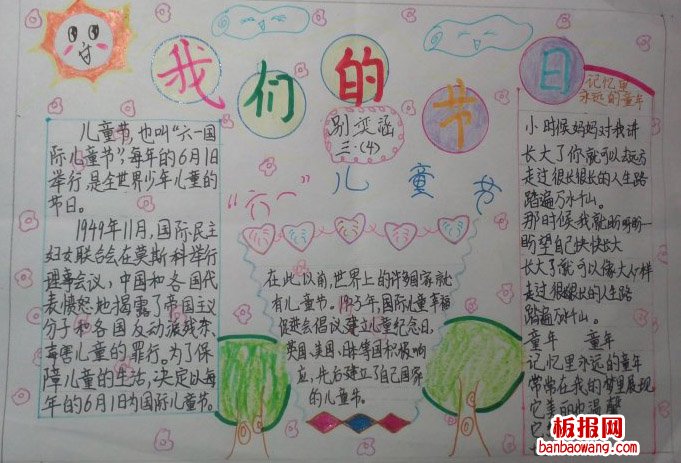 我们的节日
别奕涵
三·(4)
“六一”儿童节
儿童节,也叫“六一国
际儿童节”,每年的6月1日
举行,是全世界少年儿童的
节日。
1949年11月,国际民主
妇女联合会在莫斯科举行
理事会议,中国和各国代
表愤怒地揭露了帝国主义
分子和各国反动派残杀、
毒害儿童的罪行。为了保
障儿童的生活,决定以每
年的6月1日为国际儿童节。
在此以前,世界上的许多国家就
有儿童节。
促进会倡议建立儿童纪念日,
英国、美国、日本等国积极响
应,先后建立了自己国家
的儿童节。
记忆里
永远的童年
小时候妈妈对我讲
长大了你就可以去远方
走过很长很长的人生路
踏遍万水千山。
那时候我就盼盼盼
盼望自己快快长大
长大了就可以像大人一样
走过很长很长的人生路
踏遍万水千山。
童年 童年
记忆里永远的童年
常常在我的梦里展现
它美丽也温馨
板报网
banbaowang.com